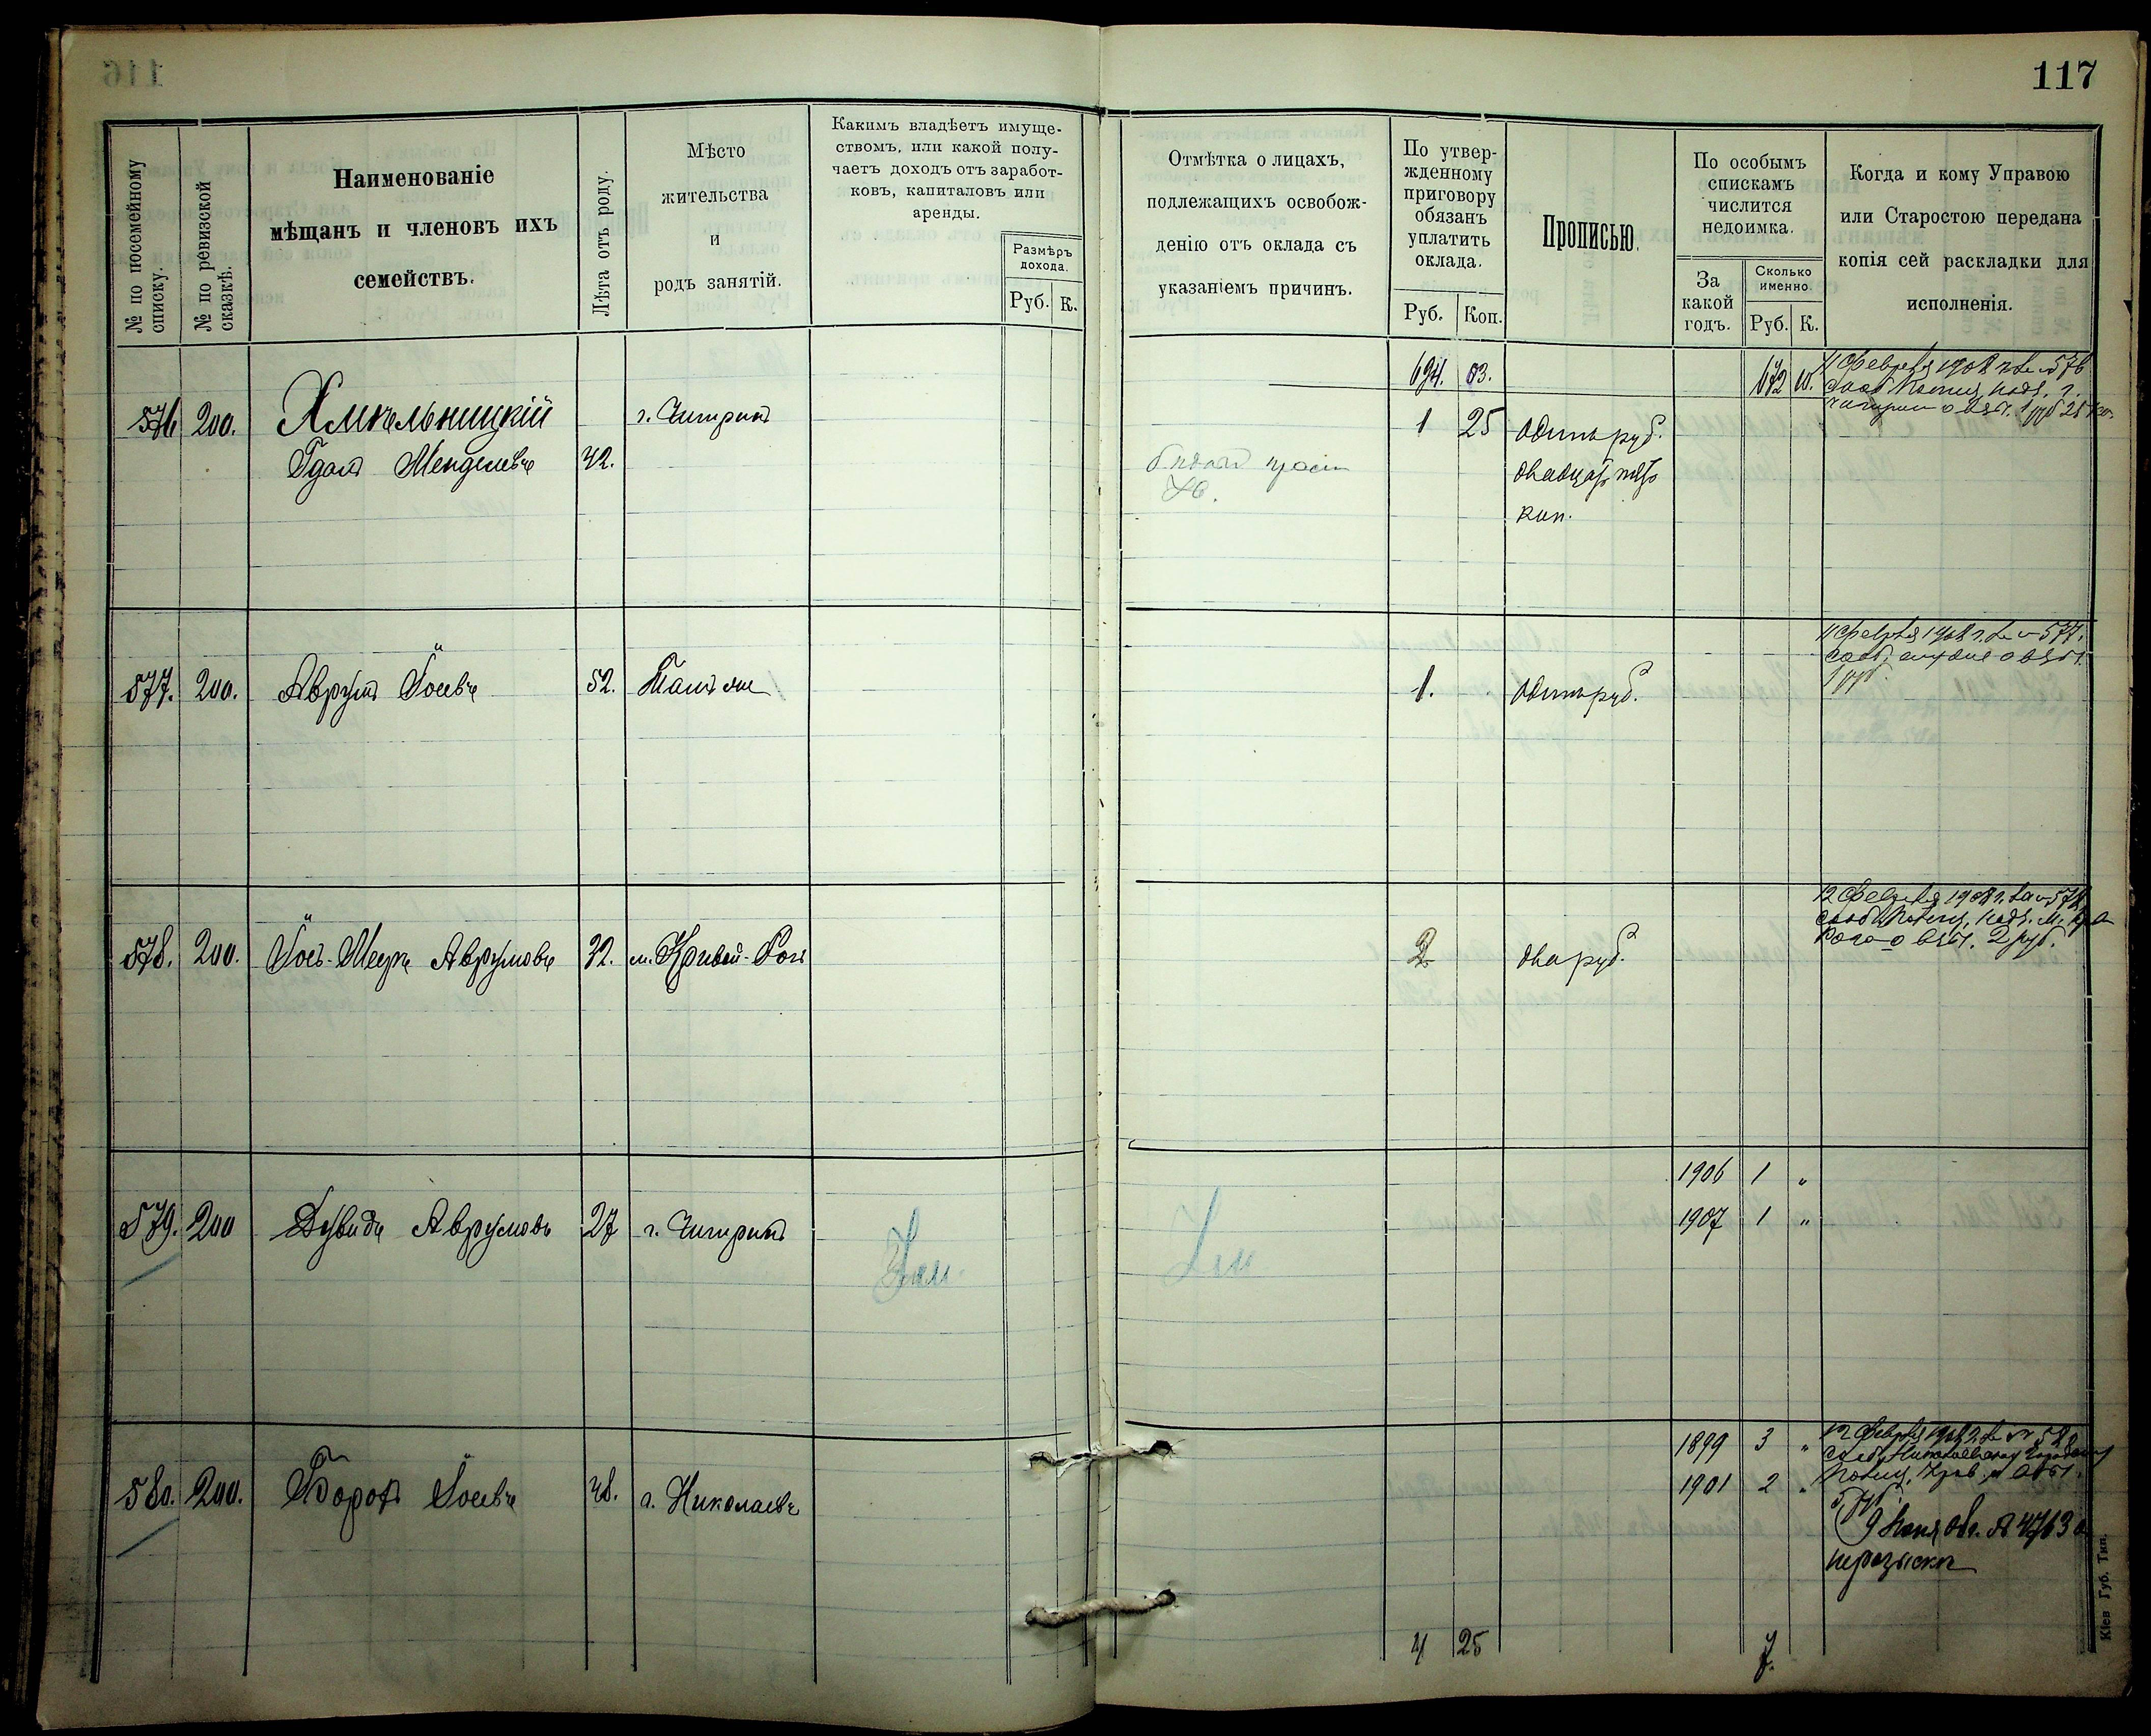 117
№ по посемейному списку.
№ по ревизской сказкѣ.
Наименованіе
мѣщанъ и членовъ ихъ
семействъ.
Лѣта отъ роду.
Мѣсто
жительства
и
родъ занятій.
Какимъ владѣетъ имуще-
ствомъ, или какой полу-
чаетъ доходъ отъ заработ-
ковъ, капиталовъ или
аренды.
Размѣръ
дохода.
Руб. К.
Отмѣтка о лицахъ,
подлежащихъ освобож-
денію отъ оклада съ
указаніемъ причинъ.
По утвер-
жденному
приговору
обязанъ
уплатить
оклада.
Руб. Коп.
Прописью.
По особымъ
спискамъ
числится
недоимка.
За
какой
годъ.
Сколько
именно
Руб. К.
Когда и кому Управою
или Старостою передана
копія сей раскладки для
исполненія.
694. 03.
672
576 200. Хмельницкій г. Чигринъ
1 25 Одинъ руб.
42.
двадцать пять
коп.
11 Февраля 1908 г. за № 576
1 руб 25 коп.
577. 200. Аврумъ Іосевъ 52. Тамъ же
1. Одинъ руб.
11 Февраля 1908 г. за № 577.
1 руб.
578. 200. Іось-Мееръ Аврумовъ 32. м. Кривой-Рогъ
2 два руб.
12 Февраля 1908 г. за № 578
Рога о взыс. 2 руб.
579. 200 Дувидъ Аврумовъ 27 г. Чигринъ
1906 1 "
1907 1 "
580. 200. Борохъ Іосевъ 48. г. Николаевъ
1899 3 "
1901 2 "
12 Февраля 1908 г. за № 580
5 руб.
4 25
7.
Кіев Губ. Тип.